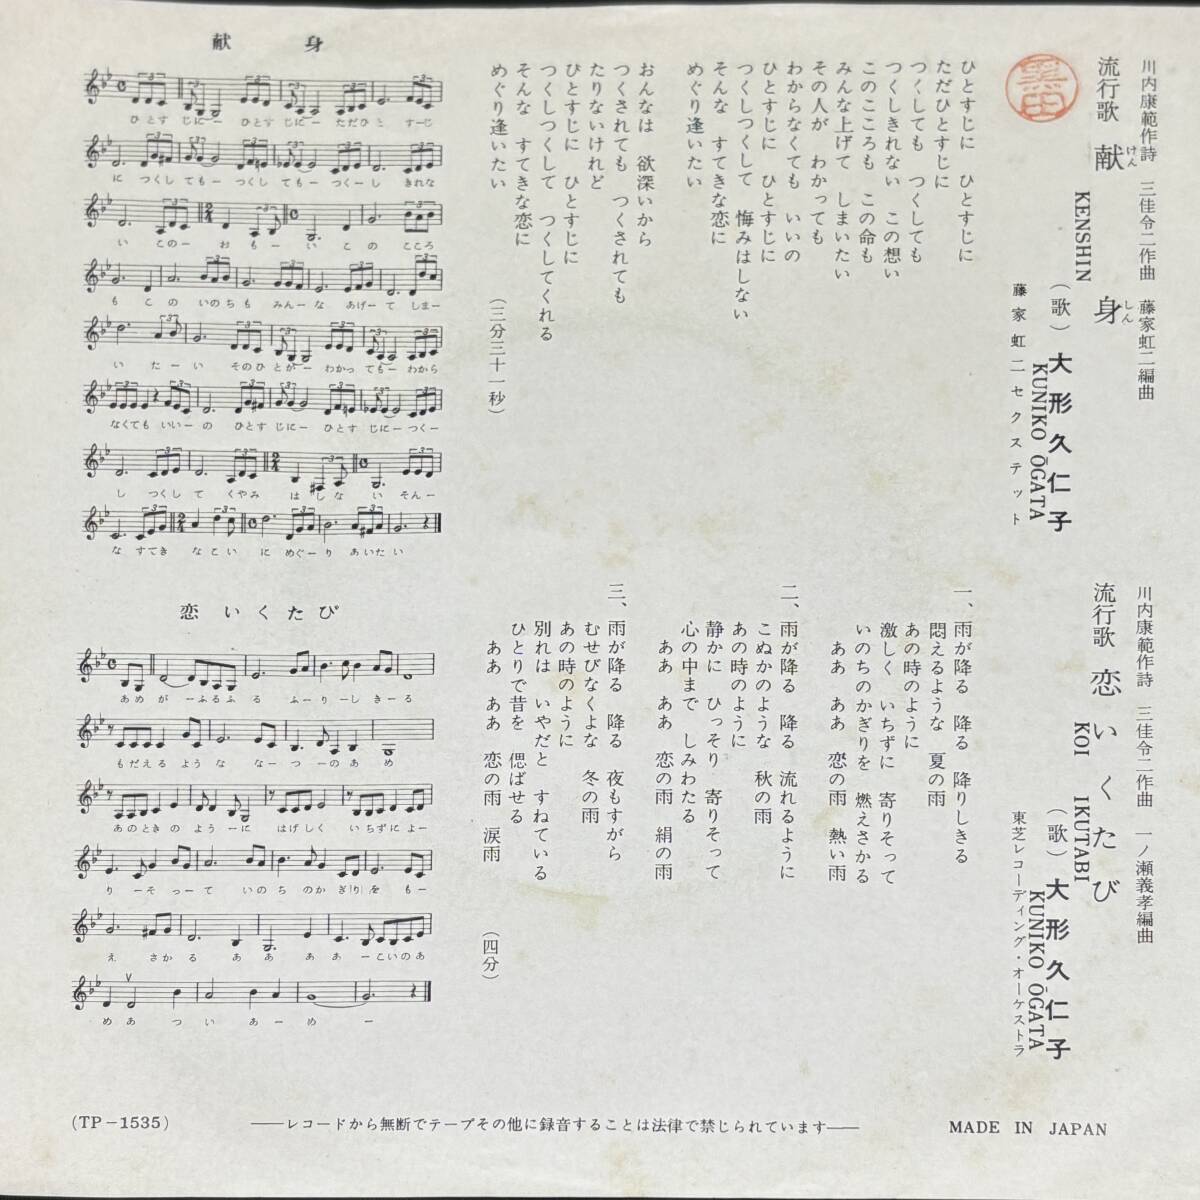 川内康範作詩 三佳令二作曲 藤家虹二編曲
流行歌 献身
けん しん
KENSHIN
(歌) 大形久仁子
KUNIKO ŌGATA
藤家虹二セクステット
黒田
ひとすじに ひとすじに
ただひとすじに
つくしても つくしても
つくしきれない この想い
このこころも この命も
みんな上げて しまいたい
その人が わかっても
わからなくても いいの
ひとすじに ひとすじに
つくしつくして 悔みはしない
そんな すてきな恋に
めぐり逢いたい
おんなは 欲深いから
つくされても つくされても
たりないけれど
ひとすじに ひとすじに
つくしつくして つくしてくれる
そんな すてきな恋に
めぐり逢いたい
(三分三十一秒)
献 身
ひとす じにー ひとす じにー ただひと すーじ
に つくし てもー つくし てもー つくーし きれな
い このー おもーい この こころ
も この いのちも みんーな あげーて しまー
い たーい そのひ とがー わかっ てもー わから
なくても いいーの ひとす じにー ひとす じにー つくー
し つくし て くやみ は しな い そんー
な すてき なこい に めぐーり あいたい
川内康範作詩 三佳令二作曲 一ノ瀬義孝編曲
流行歌 恋いくたび
KOI IKUTABI
(歌) 大形久仁子
KUNIKO ŌGATA
東芝レコーディング・オーケストラ
一、雨が降る 降る 降りしきる
悶えるような 夏の雨
あの時のように
激しく いちずに 寄りそって
いのちのかぎりを 燃えさかる
ああ ああ 恋の雨 熱い雨
二、雨が降る 降る 流れるように
こぬかのような 秋の雨
あの時のように
静かに ひっそり 寄りそって
心の中まで しみわたる
ああ ああ 恋の雨 絹の雨
三、雨が降る 降る 夜もすがら
むせびなくよな 冬の雨
あの時のように
別れは いやだと すねている
ひとりで昔を 偲ばせる
ああ ああ 恋の雨 涙雨
(四分)
恋 いくたび
あめ がーふるふ る ふーりーしきーる
もだえる ような なーつーのあ め
あのときの ようーに はげしく いちずによー
りーそっーて いのち のかぎりを もー
え さかる ああ ああーこいのあ
めあ つい あーめー
(TP-1535)
——レコードから無断でテープその他に録音することは法律で禁じられています——
MADE IN JAPAN